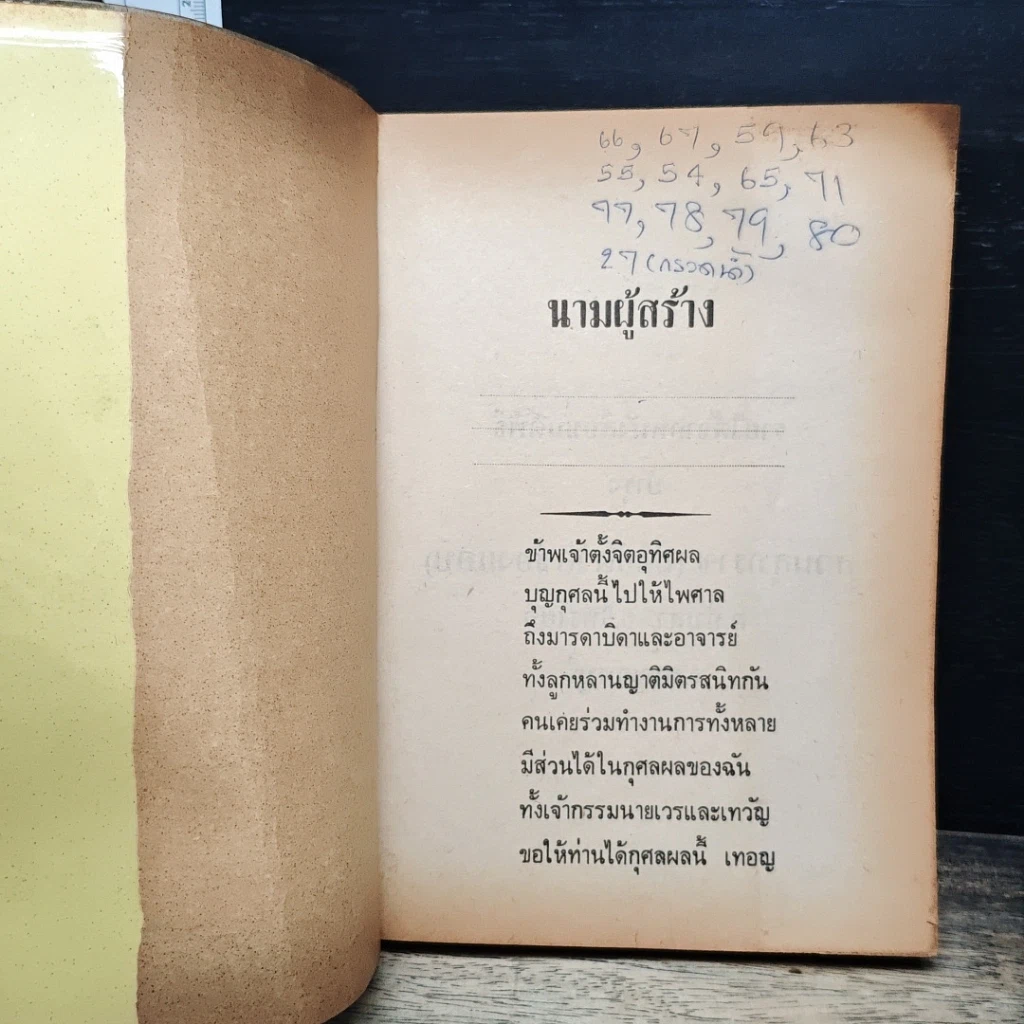 66, 67, 59, 63
55, 54, 65, 71
77, 78, 79, 80
27 (กรวดน้ำ)
นามผู้สร้าง
ข้าพเจ้าตั้งจิตอุทิศผล
บุญกุศลนี้ไปให้ไพศาล
ถึงมารดาบิดาและอาจารย์
ทั้งลูกหลานญาติมิตรสนิทกัน
คนเคยร่วมทำงานการทั้งหลาย
มีส่วนได้ในกุศลผลของฉัน
ทั้งเจ้ากรรมนายเวรและเทวัญ
ขอให้ท่านได้กุศลผลนี้ เทอญ